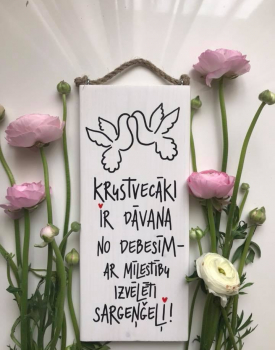 KRUSTVECĀKI
IR DĀVANA
NO DEBESĪM-
AR MĪLESTĪBU
IZVĒLĒTI
SARGEŅĢEĻI!